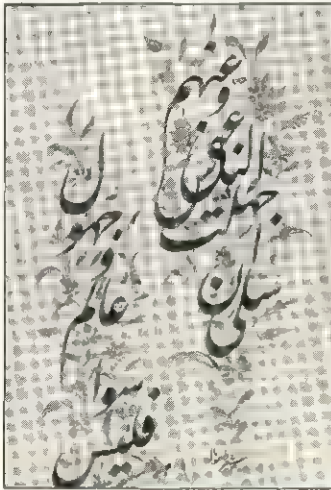 سلی ان جهلت الناس عنی وعنهم
فلیس سواء عالم وجهول